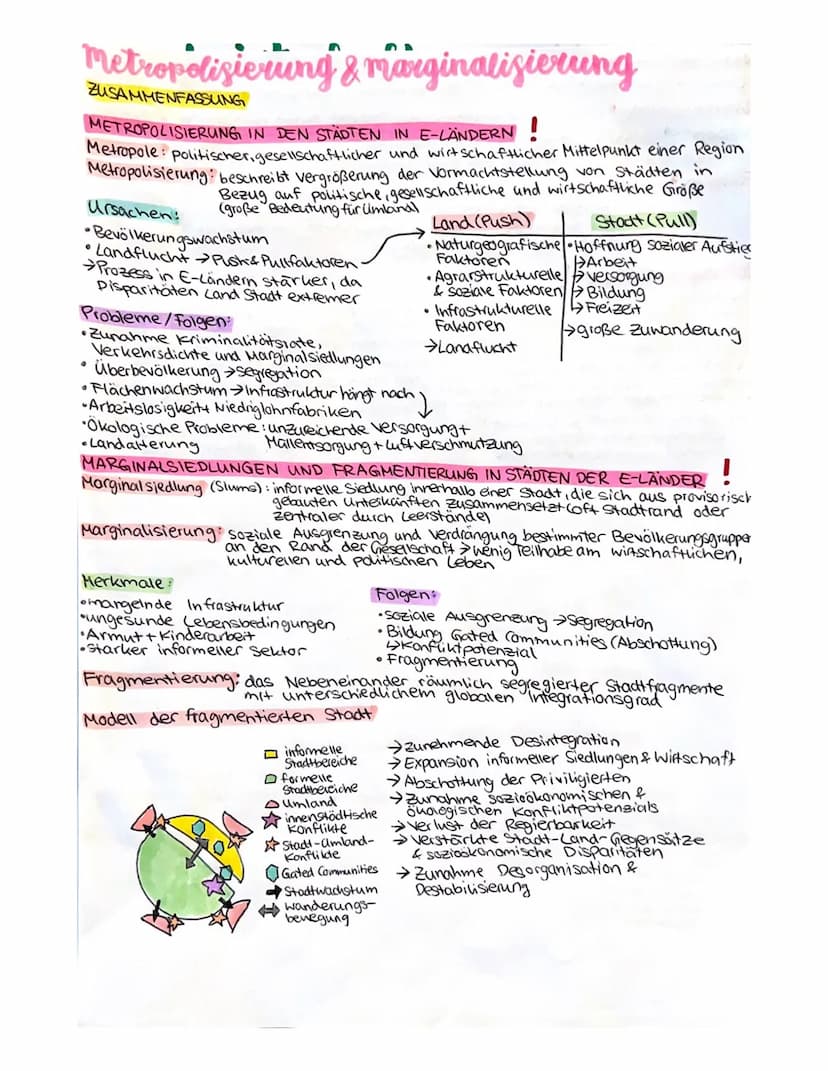 Metropolisierung & marginalisierung
ZUSAMMENFASSUNG
METROPOLISIERUNG IN DEN STÄDTEN IN E-LÄNDERN !
Metropole: politischer, gesellschaftlicher und wirtschaftlicher Mittelpunkt einer Region
Metropolisierung: beschreibt Vergrößerung der Vormachtstellung von Städten in
Bezug auf politische, gesellschaftliche und wirtschaftliche Größe
(große Bedeutung für Umland)
Ursachen:
• Bevölkerungswachstum
• Landflucht → Push & Pullfaktoren
→ Prozess in E-Ländern stärker, da
Disparitäten Land Stadt extremer
Land (Push)
• Naturgeografische
Faktoren
• Agrarstrukturelle
& soziale Faktoren
• Infrastrukturelle
Faktoren
→ Landflucht
Stadt (Pull)
• Hoffnung sozialer Aufstieg
↳ Arbeit
↳ Versorgung
↳ Bildung
↳ Freizeit
→ große Zuwanderung
Probleme / Folgen:
• Zunahme Kriminalitätsrate,
Verkehrsdichte und Marginalsiedlungen
• Überbevölkerung → Segregation
• Flächenwachstum → Infrastruktur hängt nach
• Arbeitslosigkeit + Niedriglohnfabriken
• Ökologische Probleme: unzureichende Versorgung +
Müllentsorgung + Luftverschmutzung
• Landalterung
MARGINALSIEDLUNGEN UND FRAGMENTIERUNG IN STÄDTEN DER E-LÄNDER !
Marginalsiedlung (Slums): informelle Siedlung innerhalb einer Stadt, die sich aus provisorisch
gebauten Unterkünften zusammensetzt (oft Stadtrand oder
zentraler durch Leerstände)
Marginalisierung: soziale Ausgrenzung und Verdrängung bestimmter Bevölkerungsgruppe
an den Rand der Gesellschaft → wenig Teilhabe am wirtschaftlichen,
kulturellen und politischen Leben
Merkmale:
• mangelnde Infrastruktur
• ungesunde Lebensbedingungen
• Armut + Kinderarbeit
• starker informeller Sektor
Folgen:
• soziale Ausgrenzung → Segregation
• Bildung Gated Communities (Abschottung)
↳ Konfliktpotenzial
• Fragmentierung
Fragmentierung: das Nebeneinander räumlich segregierter Stadtfragmente
mit unterschiedlichem globalen Integrationsgrad
Modell der fragmentierten Stadt
informelle
Stadtbereiche
formelle
Stadtbereiche
Umland
innenstädtische
Konflikte
Stadt-Umland-
Konflikte
Gated Communities
Stadtwachstum
Wanderungs-
bewegung
→ zunehmende Desintegration
→ Expansion informeller Siedlungen & Wirtschaft
→ Abschottung der Priviligierten
→ Zunahme sozioökonomischen &
ökologischen Konfliktpotenzials
→ Verlust der Regierbarkeit
→ Verstärkte Stadt-Land-Gegensätze
& sozioökonomische Disparitäten
→ Zunahme Desorganisation &
Destabilisierung